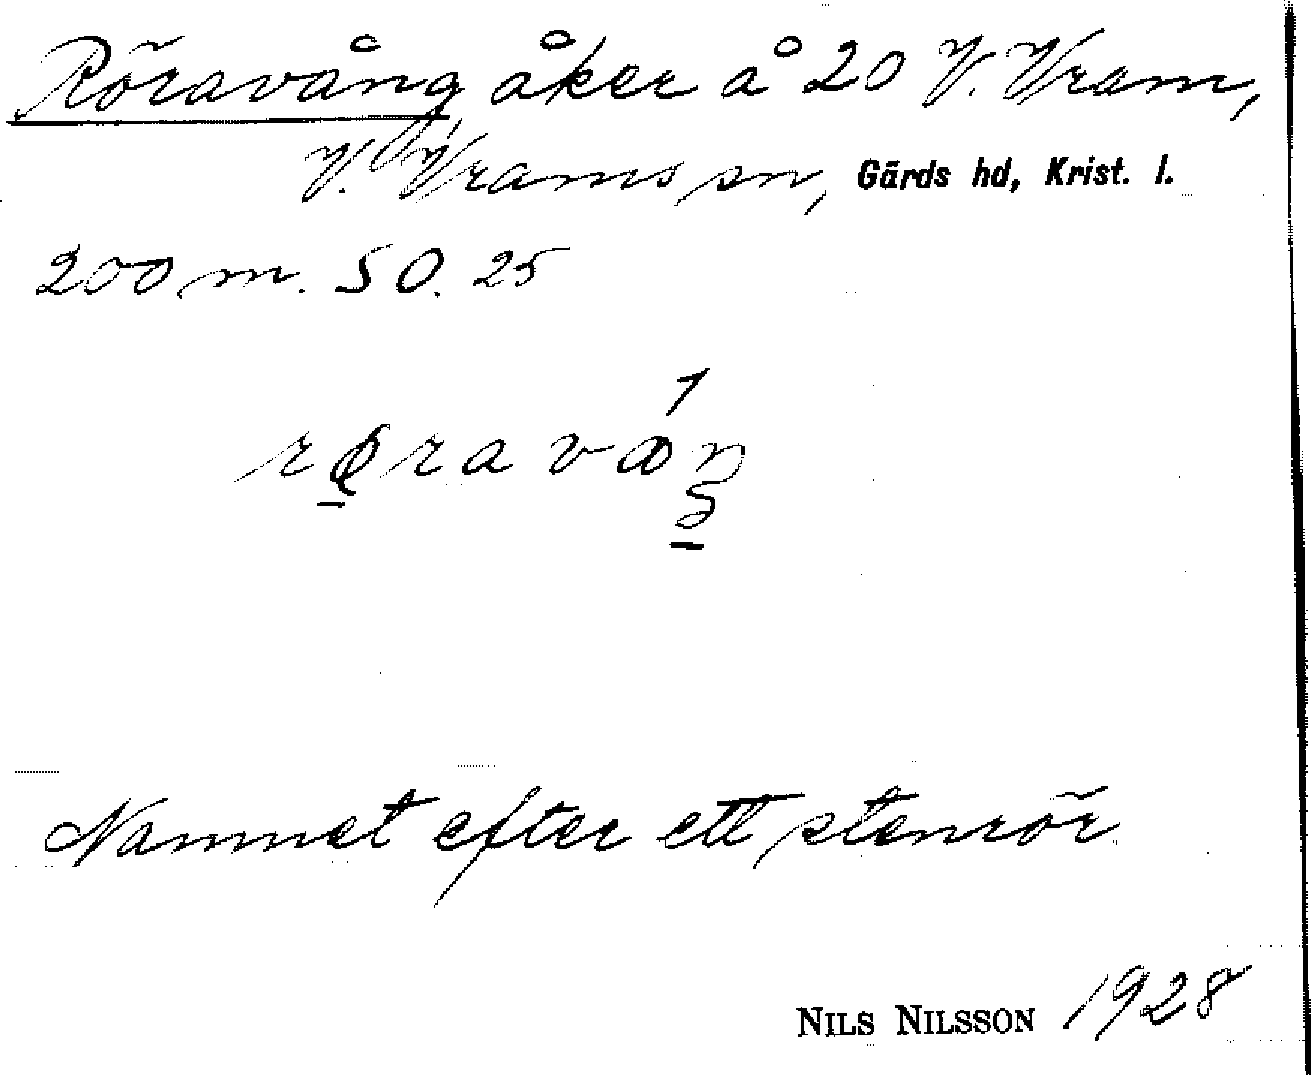 Röravång åker å 20 V. Vram,
V. Vrams sn, Gärds hd, Krist. l.
200 m. SO. 25
Namnet efter ett stenrör
NILS NILSSON 1928